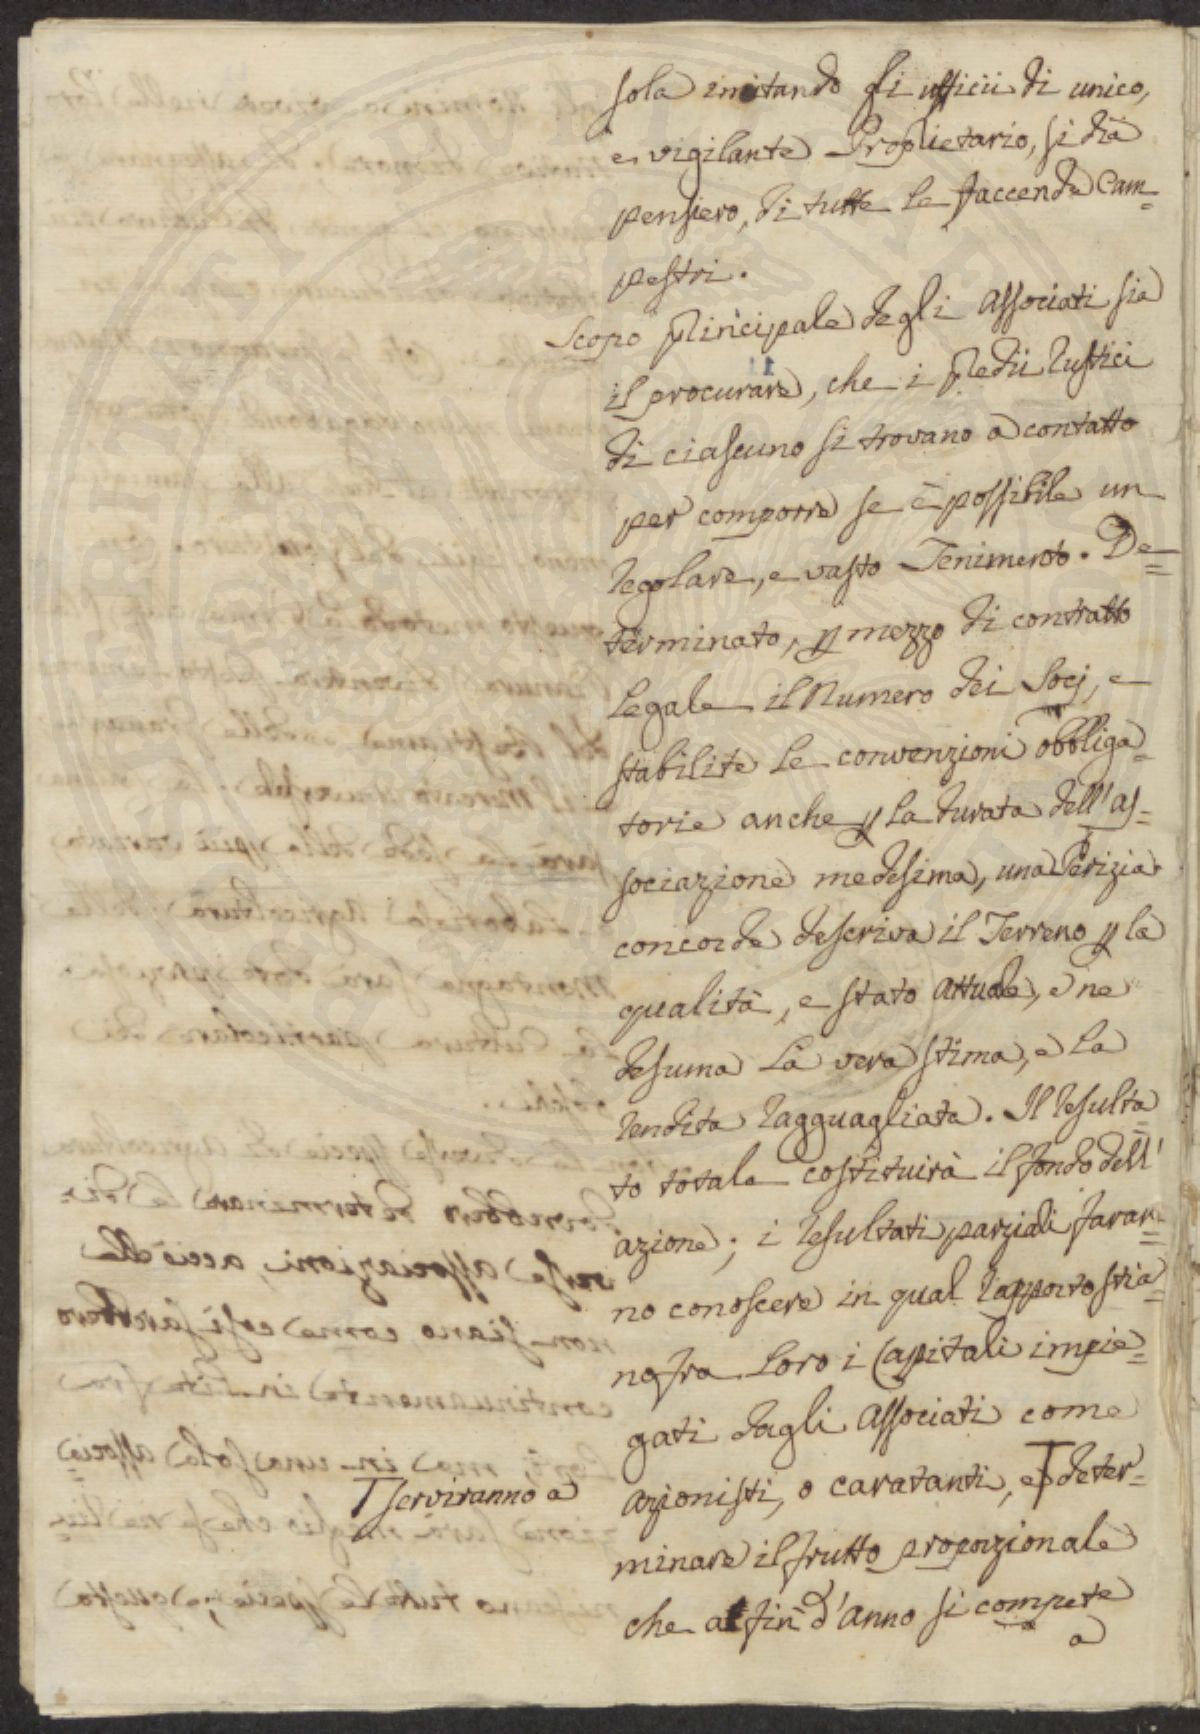 sola imitando gli ufficii di unico,
e vigilante Proprietario, si dia
pensiero, di tutte le faccende Cam=
pestri.
Scopo principale degli Associati sia
il procurare, che i Predii rustici
di ciascuno si trovano a contatto
per comporre se è possibile un
regolare, e vasto Tenimento. De=
terminato, p mezzo di contratto
legale il Numero dei Socj, e
stabilite le convenzioni obbliga=
torie anche p la durata dell'as=
sociazione medesima, una Perizia
concorde descriva il Terreno p la
qualità, e stato attuale, e ne
desuma la vera stima, e la
rendita ragguagliata. Il resulta
to totale costituirà il fondo dell'
azione; i resultati parziali faran=
no conoscere in qual rapporto stia=
no fra loro i Capitali impie=
gati dagli Associati come
azionisti, o caratanti, e T deter=
T serviranno a
minare il frutto proporzionale
che al fin d'anno si compete
a